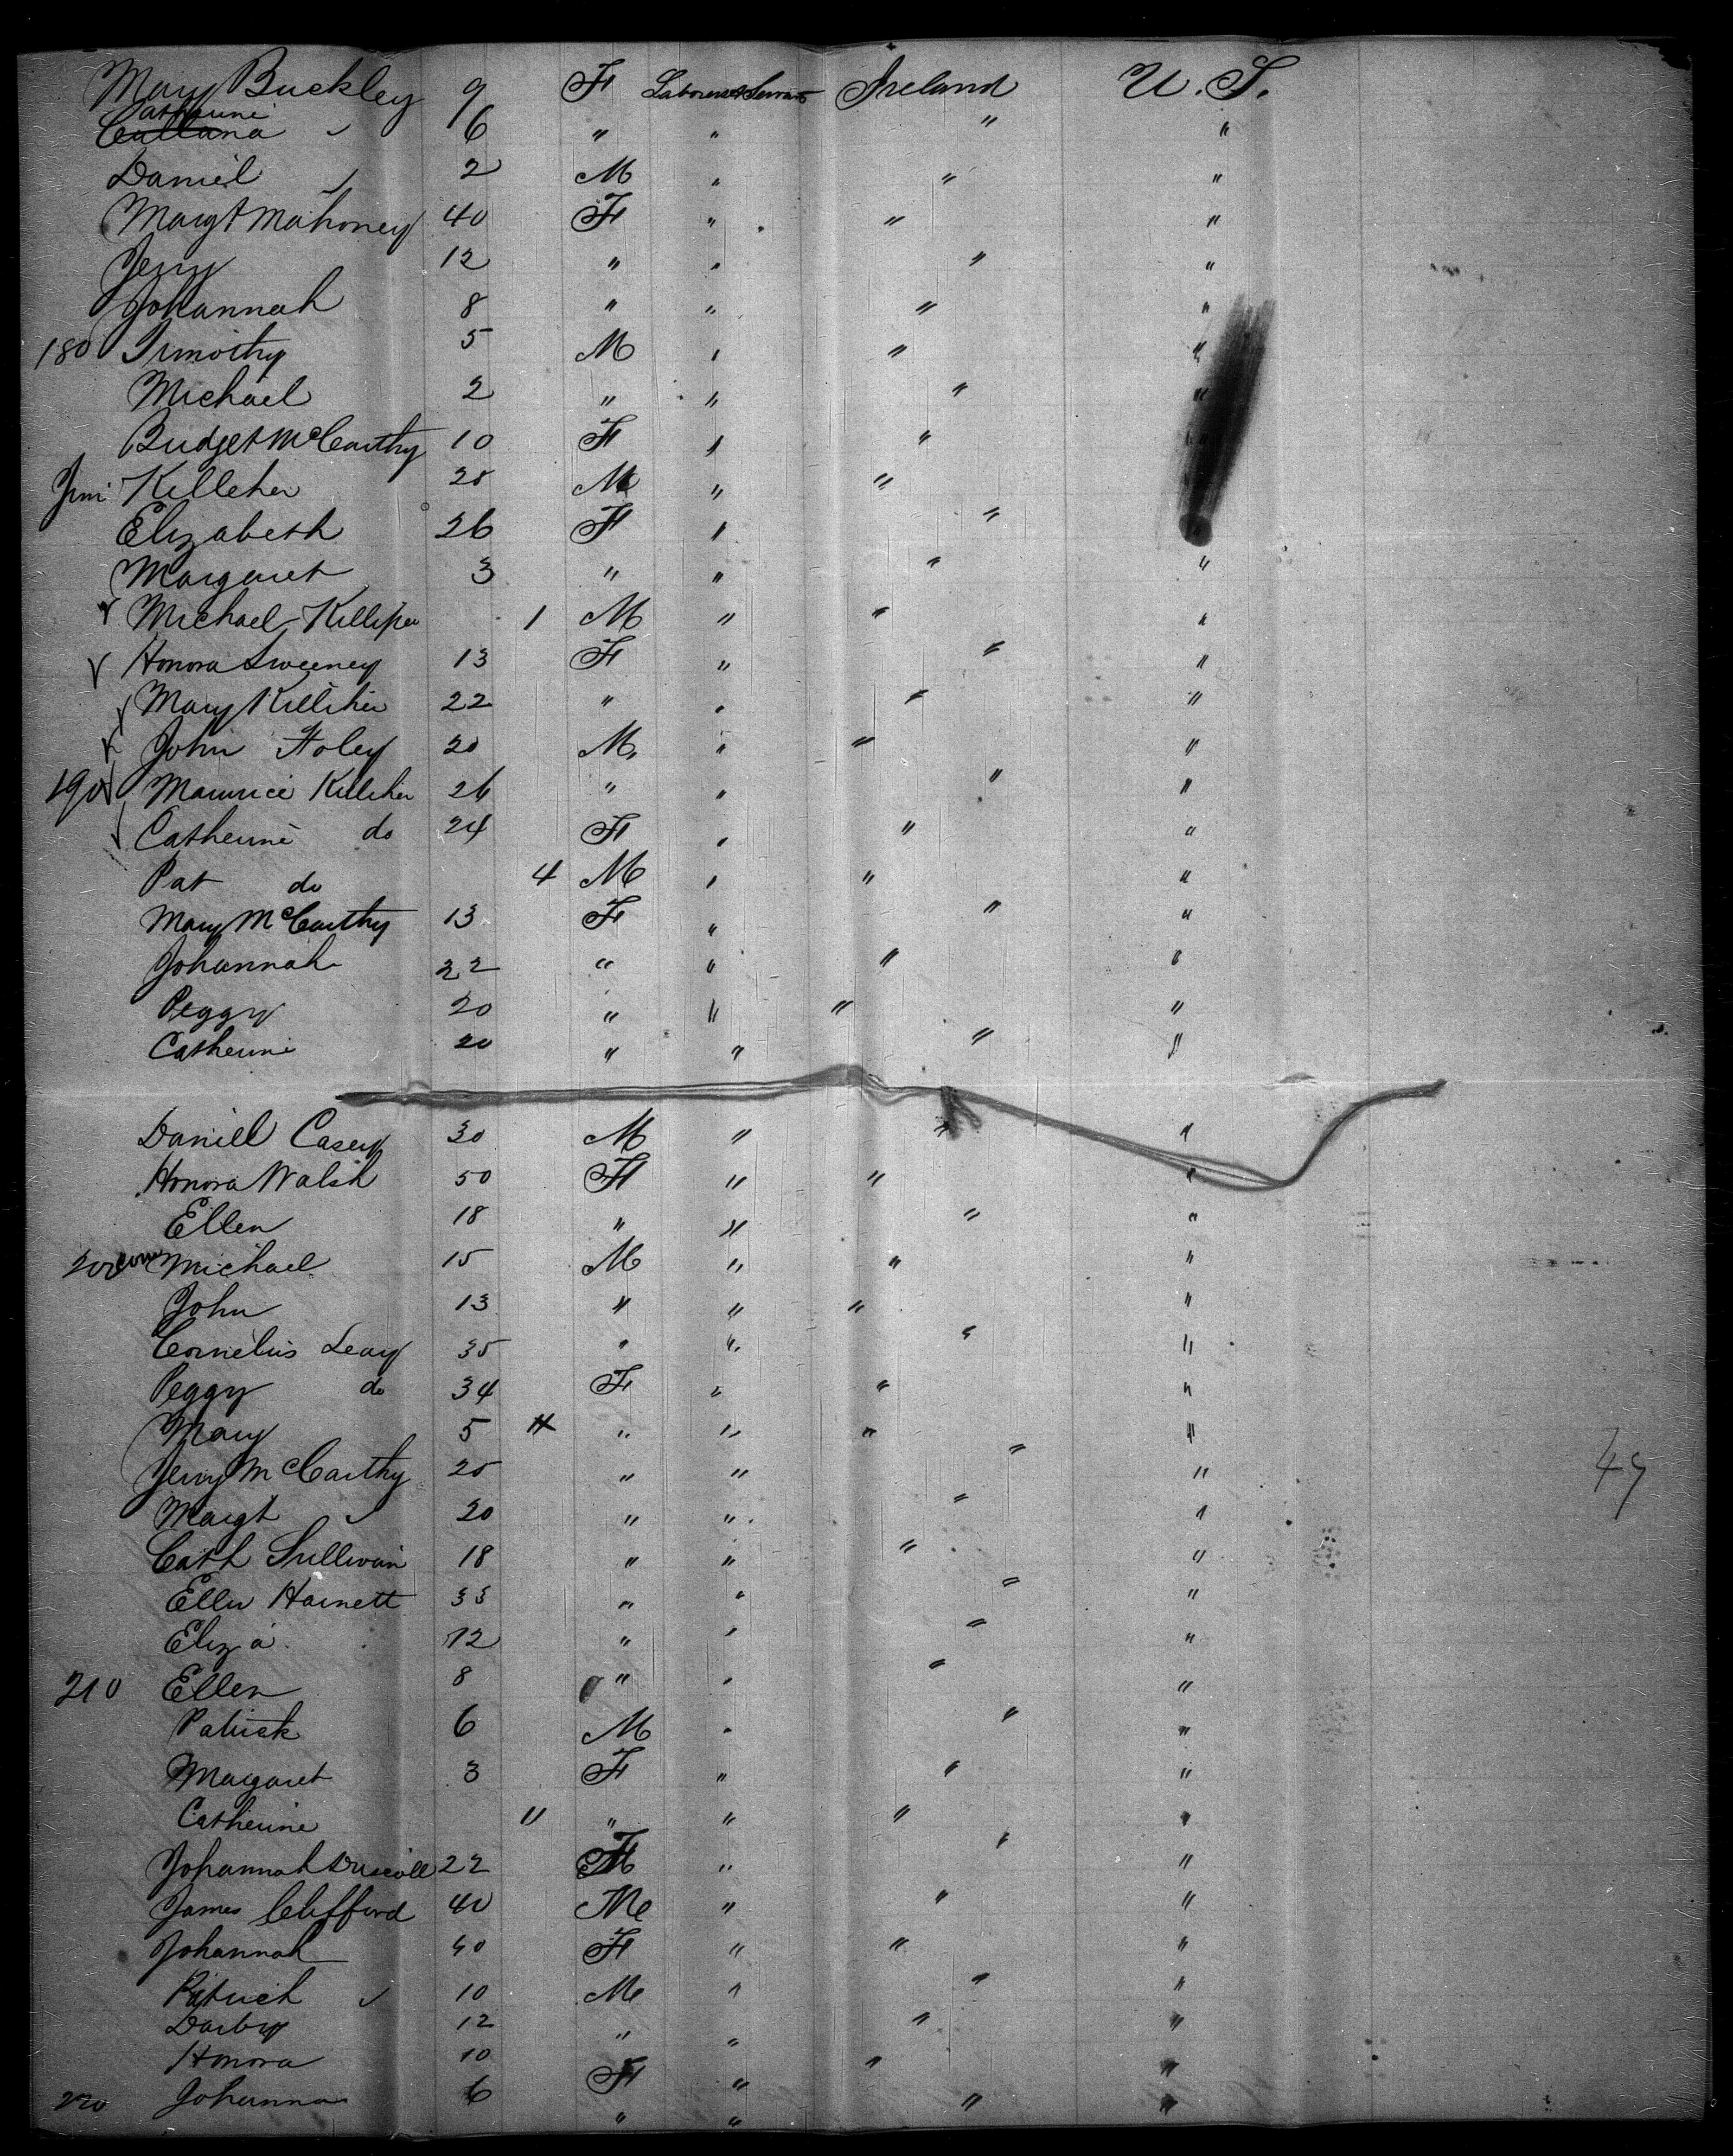 Mary Buckley 9 F Laborers & Servants Ireland U. S.
Catherine
" 6 " " " "
Daniel " 2 M " " "
Margt Mahoney 40 F " " "
Jerry 12 " " " "
Johannah 8 " " " "
180 Timothy 5 M " " "
Michael 2 " " " "
Bridget McCarthy 10 F " " "
Jim Kelleher 25 M " " "
Elizabeth 26 F " " "
Margaret 3 " " " "
Michael 1 M " " "
Honora Sweeney 13 F " " "
Mary Killiher 22 " " " "
John Foley 20 M " " "
190 Maurice Killiher 26 " " " "
Catherine do 24 F " " "
Pat do 4 M " " "
Mary McCarthy 13 F " " "
Johannah 22 " " " "
Peggy 20 " " " "
Catherine 20 " " " "
Daniel Casey 30 M " " "
Honora Walsh 50 F " " "
Ellen 18 " " " "
200 Michael 15 M " " "
John 13 " " " "
Cornelius Leary 35 " " " "
Peggy do 34 F " " "
Mary 5 " " " "
Jerry McCarthy 25 " " " "
Margt " 20 " " " "
Cath Sullivan 18 " " " "
Ellen Harnett 33 " " " "
Eliza 12 " " " "
210 Ellen 8 " " " "
Patrick 6 M " " "
Margaret 3 F " " "
Catherine 11 " " " "
Johannah Driscoll 22 F " " "
James Clifford 40 M " " "
Johannah 40 F " " "
Patrick " 10 M " " "
Darby 12 " " " "
Honora 10 F " " "
220 Johanna 6 " " " "